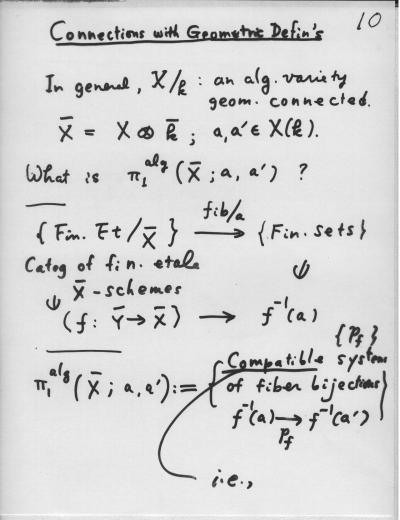 10
Connections with Geometric Defin's
In general, X/k : an alg. variety
geom. connected.
X̄ = X ⊗ k̄ ; a, a' ∈ X(k).
What is π₁^alg (X̄ ; a, a') ?
{ Fin. Et / X̄ } —fib/a→ { Fin. sets }
Catog of fin. etale
X̄ -schemes
(f: Ȳ → X̄) → f⁻¹(a)
{P_f}
Compatible system
π₁^alg (X̄ ; a, a') := { of fiber bijections }
f⁻¹(a) →_{P_f} f⁻¹(a')
i.e.,